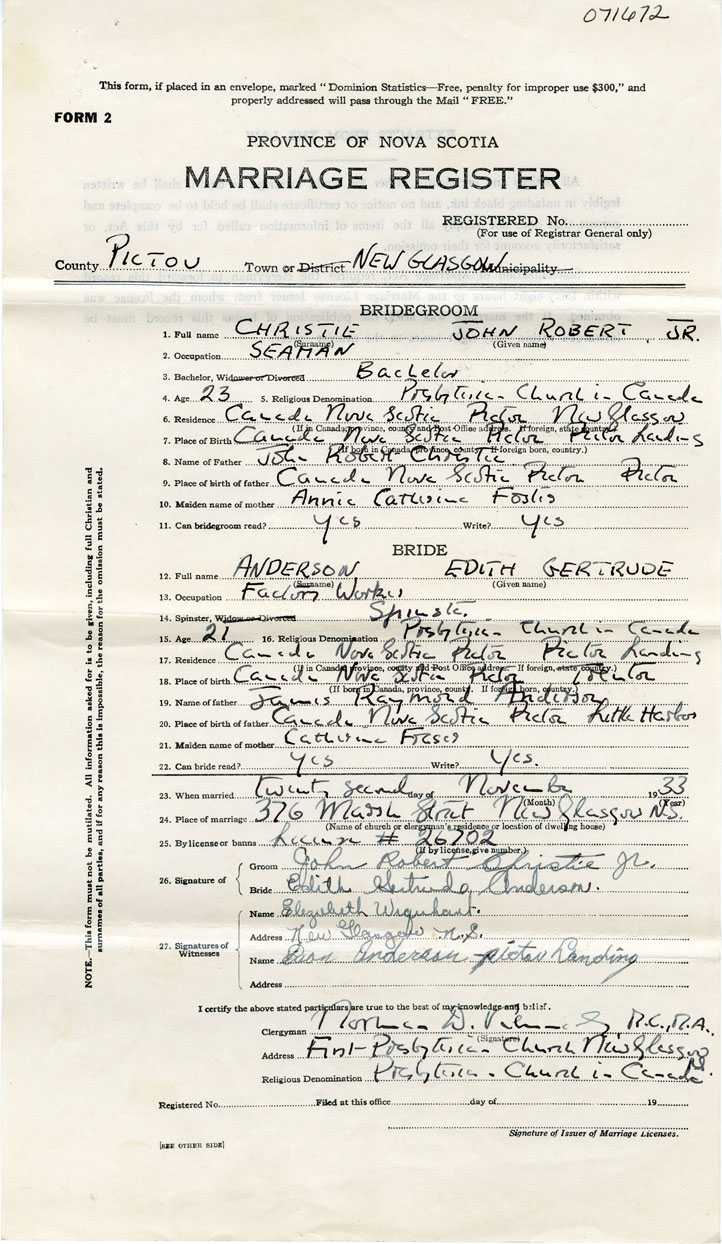 071672
This form, if placed in an envelope, marked "Dominion Statistics—Free, penalty for improper use $300," and
properly addressed will pass through the Mail "FREE."
FORM 2
PROVINCE OF NOVA SCOTIA
MARRIAGE REGISTER
REGISTERED No.
(For use of Registrar General only)
County PICTOU Town or District NEW GLASGOW Municipality
BRIDEGROOM
1. Full name CHRISTIE JOHN ROBERT, JR.
(Surname) (Given name)
2. Occupation SEAMAN
3. Bachelor, Widower or Divorced Bachelor
4. Age 23 5. Religious Denomination Presbyterian Church in Canada
6. Residence Canada Nova Scotia Pictou New Glasgow
(If in Canada, province, county and Post Office address. If foreign, state country.)
7. Place of Birth Canada Nova Scotia Pictou Pictou Landing
(If born in Canada, province, county. If foreign born, country.)
8. Name of Father John Robert Christie
9. Place of birth of father Canada Nova Scotia Pictou Pictou
10. Maiden name of mother Annie Catherine Foster
11. Can bridegroom read? yes Write? yes
BRIDE
12. Full name ANDERSON EDITH GERTRUDE
(Surname) (Given name)
13. Occupation Factory Worker
14. Spinster, Widow or Divorced Spinster
15. Age 21 16. Religious Denomination Presbyterian Church in Canada
17. Residence Canada Nova Scotia Pictou Pictou Landing
(If in Canada, province, county and Post Office address. If foreign, state, country.)
18. Place of birth Canada Nova Scotia Pictou Trenton
(If born in Canada, province, county. If foreign born, country.)
19. Name of father James Raymond Anderson
20. Place of birth of father Canada Nova Scotia Pictou Little Harbor
21. Maiden name of mother Catherine Fraser
22. Can bride read? yes Write? yes.
23. When married twenty second day of November 1933
(Month) (Year)
24. Place of marriage 376 Marsh Street New Glasgow N.S.
(Name of church or clergyman's residence or location of dwelling house)
25. By license or banns License # 26702
(If by license, give number.)
26. Signature of
Groom John Robert Christie Jr.
Bride Edith Gertrude Anderson.
27. Signatures of Witnesses
Name Elizabeth Urquhart.
Address New Glasgow N.S.
Name Anderson pictou Landing
Address
I certify the above stated particulars are true to the best of my knowledge and belief.
Clergyman Norman D. M.C., M.A.
(Signature)
Address First Presbyterian Church New Glasgow N.S.
Religious Denomination Presbyterian Church in Canada
Registered No. Filed at this office day of 19
Signature of Issuer of Marriage Licenses.
[SEE OTHER SIDE]
NOTE.—This form must not be mutilated. All information asked for is to be given, including full Christian and
surnames of all parties, and if for any reason this is impossible, the reason for the omission must be stated.